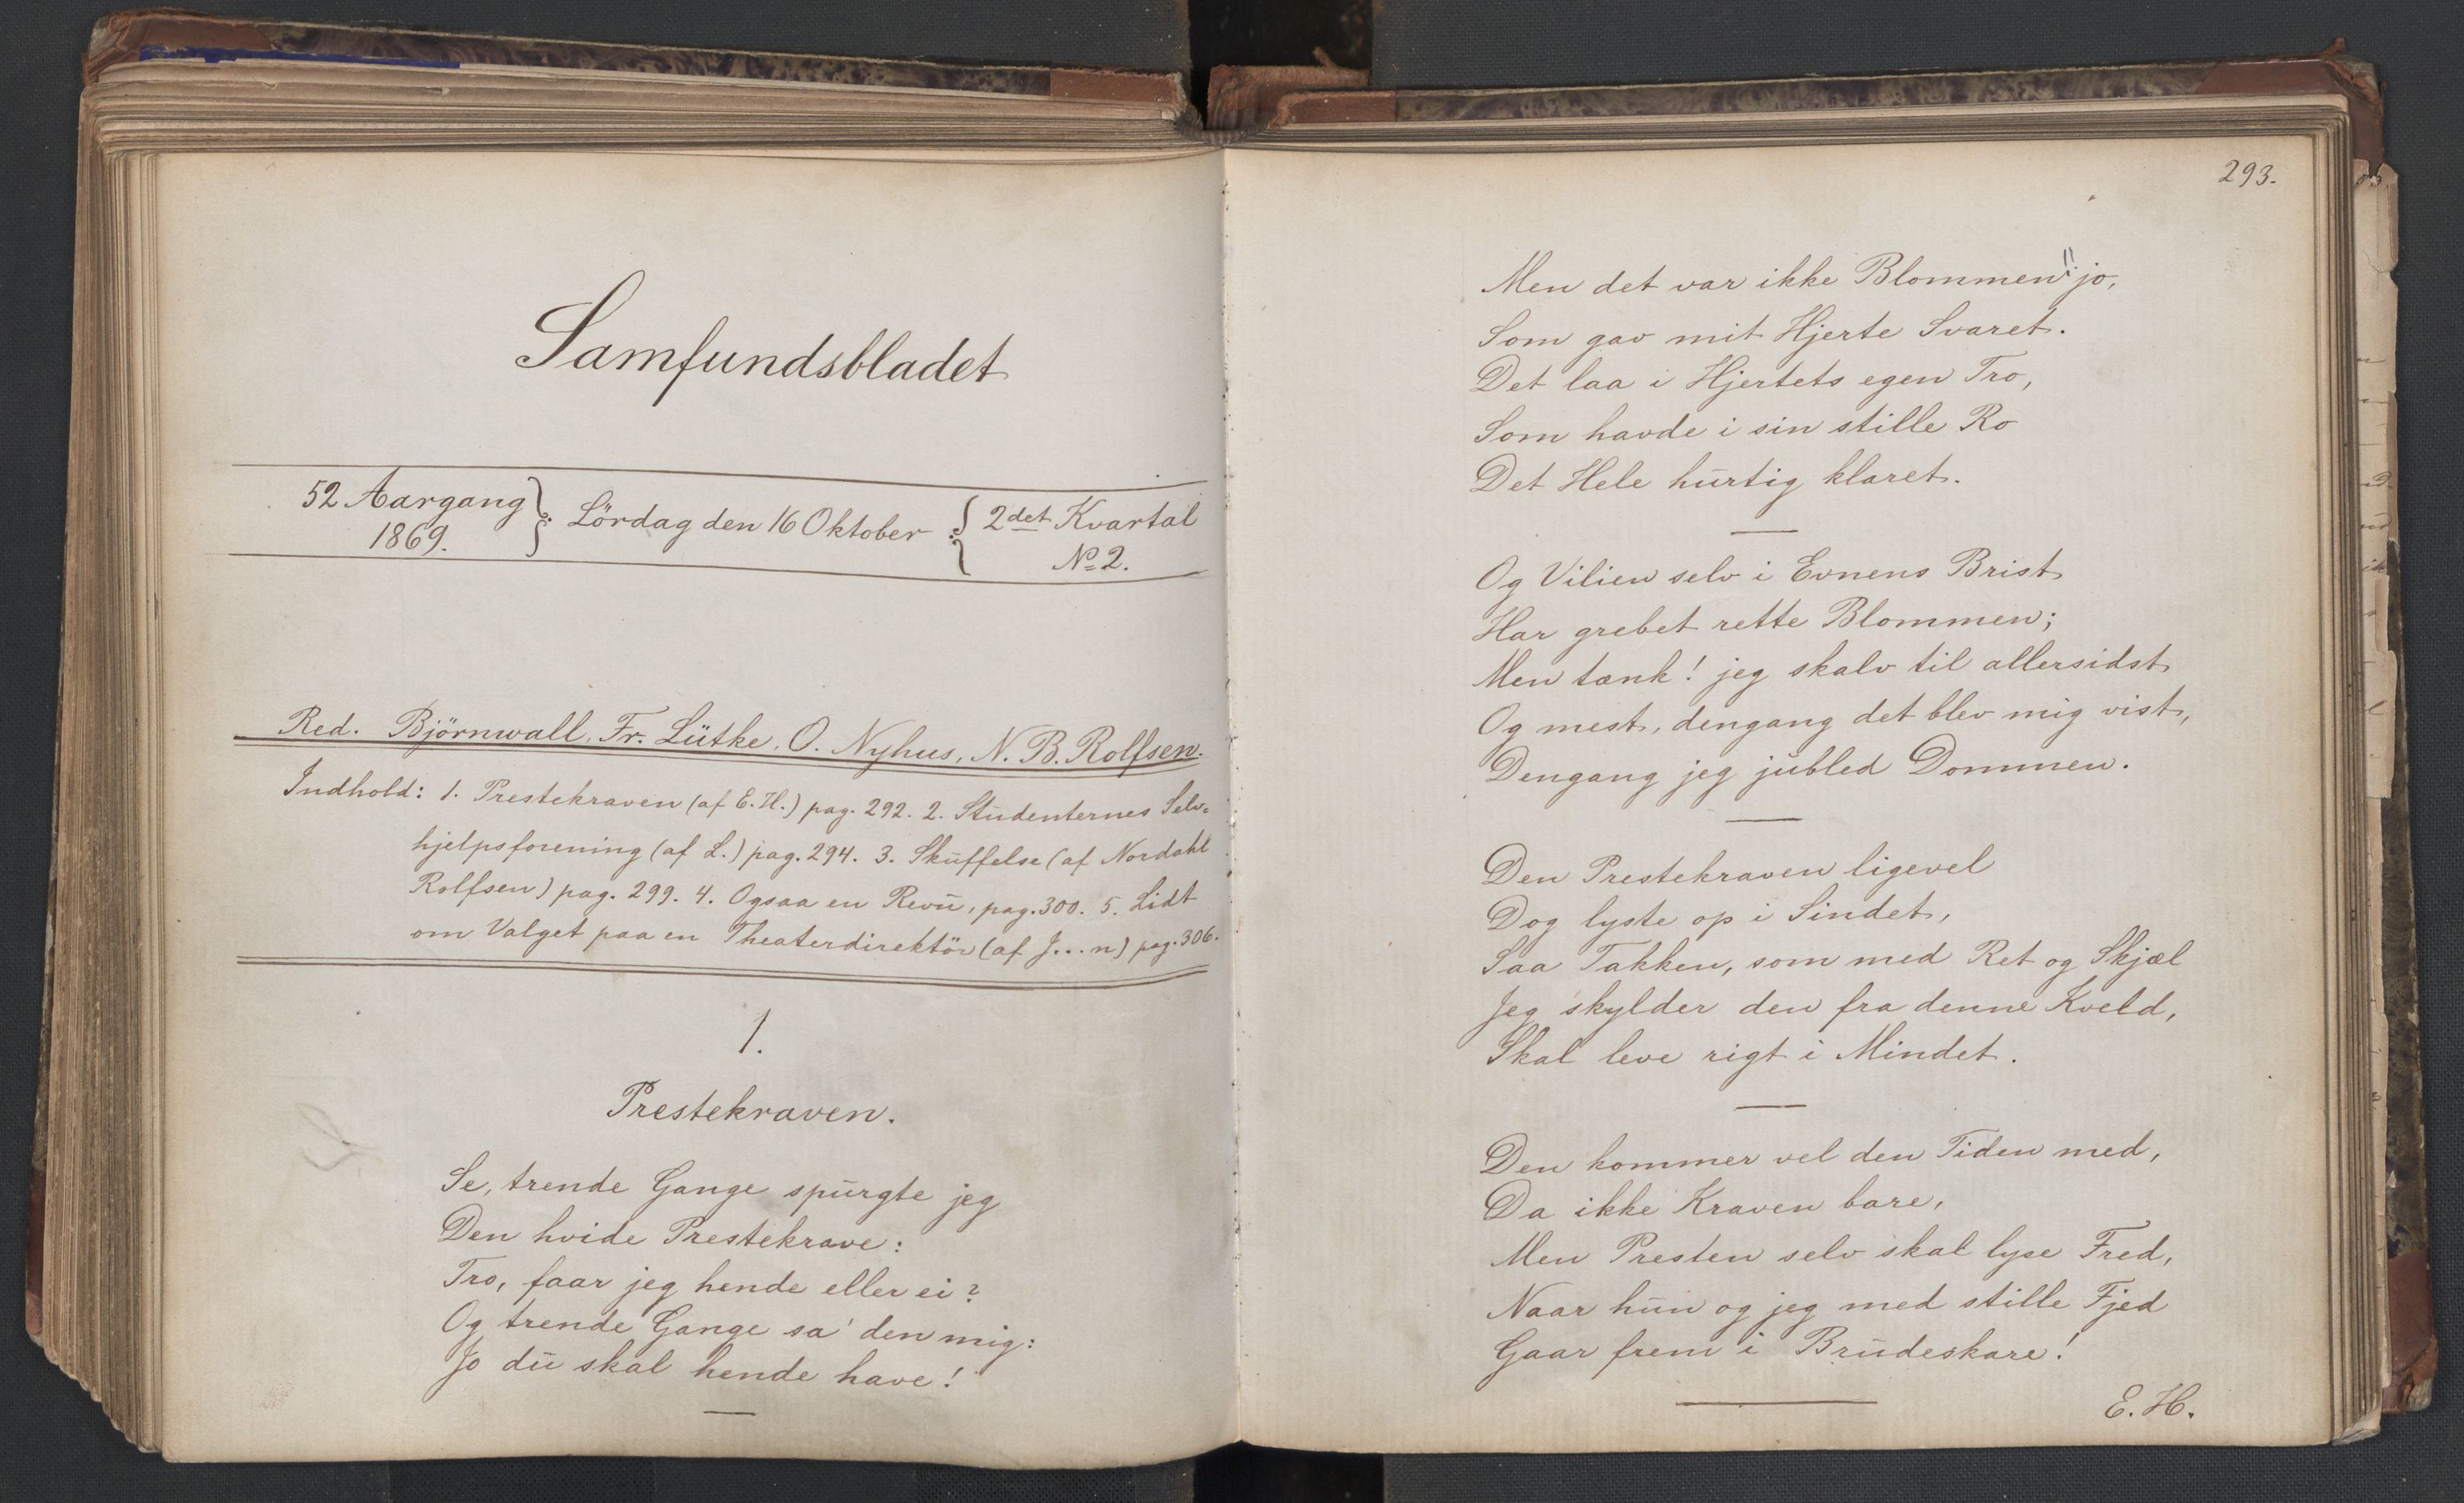 Samfundsbladet
52 Aargang
1869.
Lördag den 16 Oktober
2det Kvartal
No 2.
Red. Björnwall, Fr. Lütke, O. Nyhus, N. B. Rolfsen.
Indhold: 1. Prestekraven (af E. H.) pag. 292. 2. Studenternes Selv=
hjelpsforening (af L.) pag. 294. 3. Skuffelse (af Nordahl
Rolfsen) pag. 299. 4. Ogsaa en Revu, pag. 300. 5. Lidt
om Valget paa en Theaterdirektör (af J...n) pag. 306.
1.
Prestekraven.
Se, trende Gange spurgte jeg
Den hvide Prestekrave:
Tro, faar jeg hende eller ei?
Og trende Gange sa' den mig:
Jo du skal hende have!
293.
Men det var ikke Blommen": jo,
Som gav mit Hjerte Svaret.
Det laa i Hjertets egen Tro,
Som havde i sin stille Ro
Det Hele hurtig klaret.
Og Vilien selv i Evnens Brist
Har grebet rette Blommen;
Men tænk! jeg skalv til allersidst
Og mest, dengang det blev mig vist,
Dengang jeg jubled Dommen.
Den Prestekraven ligevel
Dog lyste op i Sindet,
Saa Takken, som med Ret og Skjæl
Jeg skylder den fra denne Kveld,
Skal leve rigt i Mindet.
Den kommer vel den Tiden med,
Da ikke Kraven bare,
Men Presten selv skal lyse Fred,
Naar hun og jeg med stille Fjed
Gaar frem i Brudeskare!
E. H.